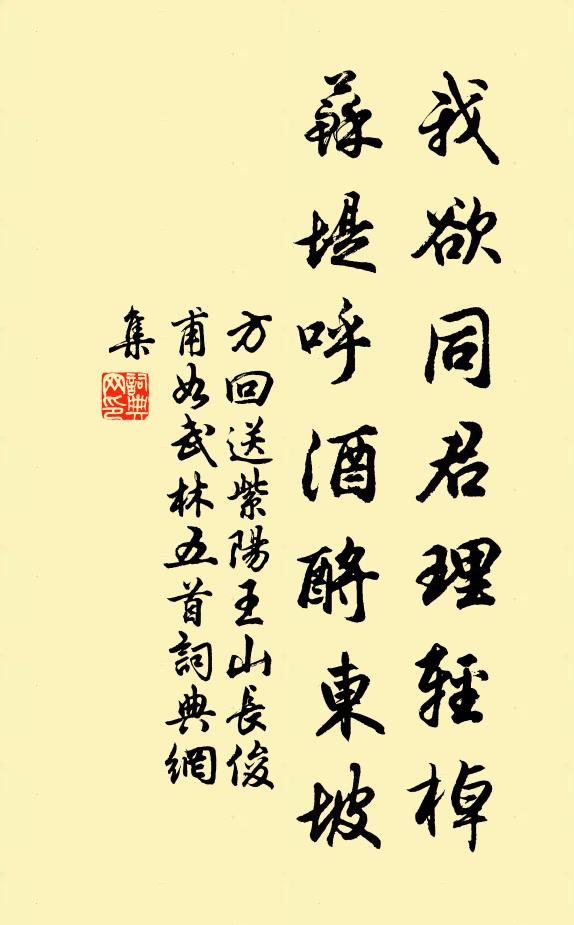 我欲同君理輕棹
蘇堤呼酒酹東坡
方回送紫陽王山長俊
甫如武林五首詞典網
集
詞典
网印